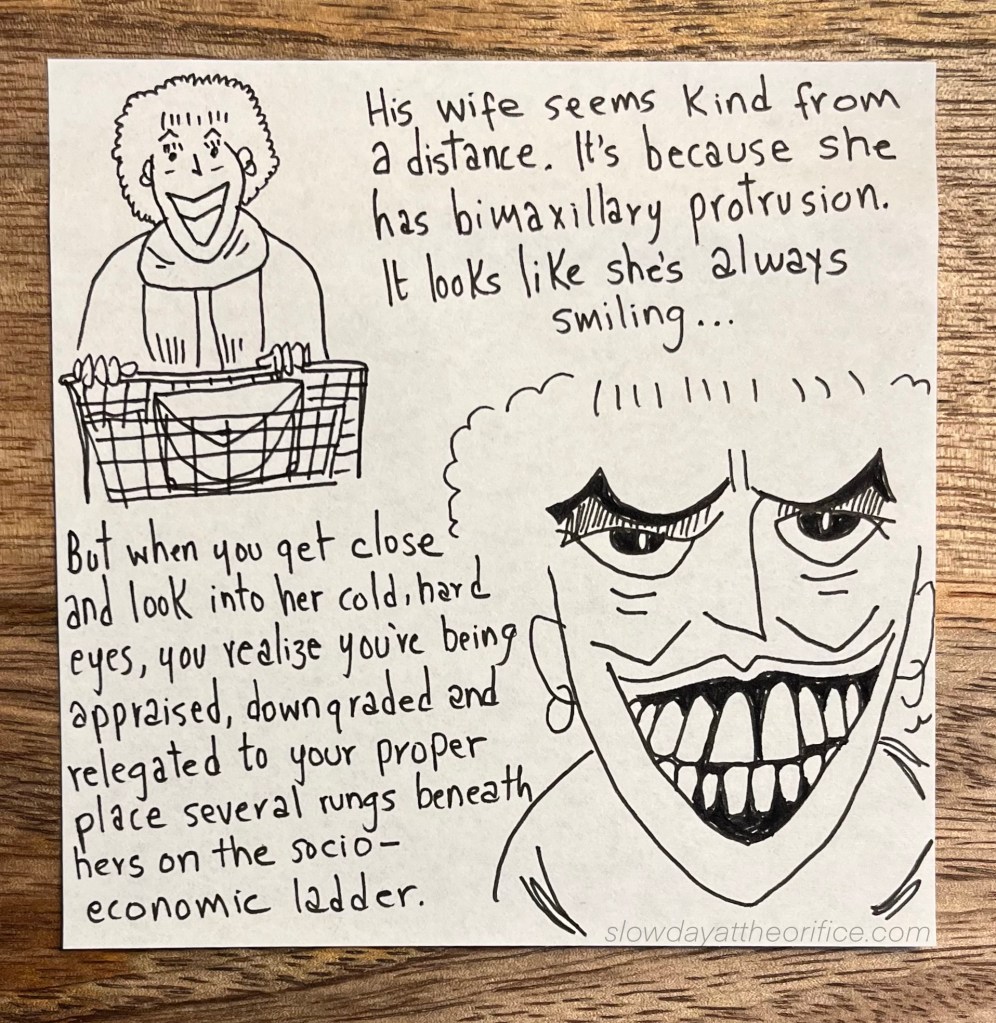 His wife seems kind from
a distance. It's because she
has bimaxillary protrusion.
It looks like she's always
smiling...
But when you get close
and look into her cold, hard
eyes, you realize you're being
appraised, downgraded and
relegated to your proper
place several rungs beneath
hers on the socio-
economic ladder.
slowdayattheorifice.com